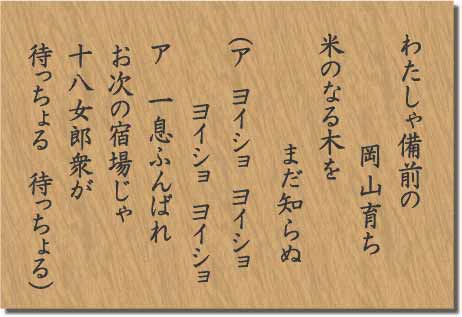 わたしゃ備前の
岡山育ち
米のなる木を
まだ知らぬ
(ア ヨイショ ヨイショ
ヨイショ ヨイショ
ア 一息ふんばれ
お次の宿場じゃ
十八女郎衆が
待っちょる 待っちょる)